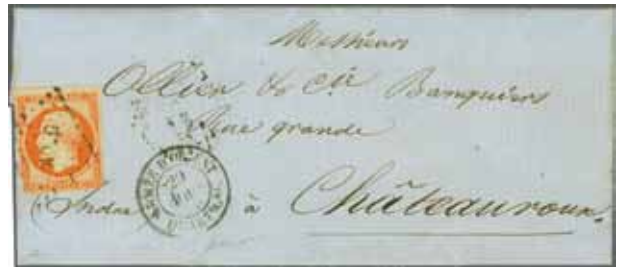 Messieurs
Ollier & Cie Banquiers
Rue grande
(Indre à Châteauroux.
ARMÉE D'ORIENT